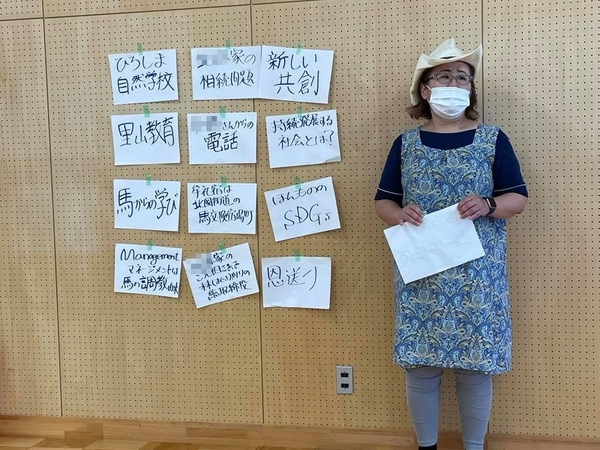 ひろしま
自然学校
家の
相続問題
新しい
共創
里山教育
さんからの
電話
持続発展する
社会とは?
馬からの学び
牟礼宿は
北国街道の
馬文化宿場町
ほんものの
SDGs
Management
マネージメントは
馬の調教由来
家の
ご先祖さまは
恩送り